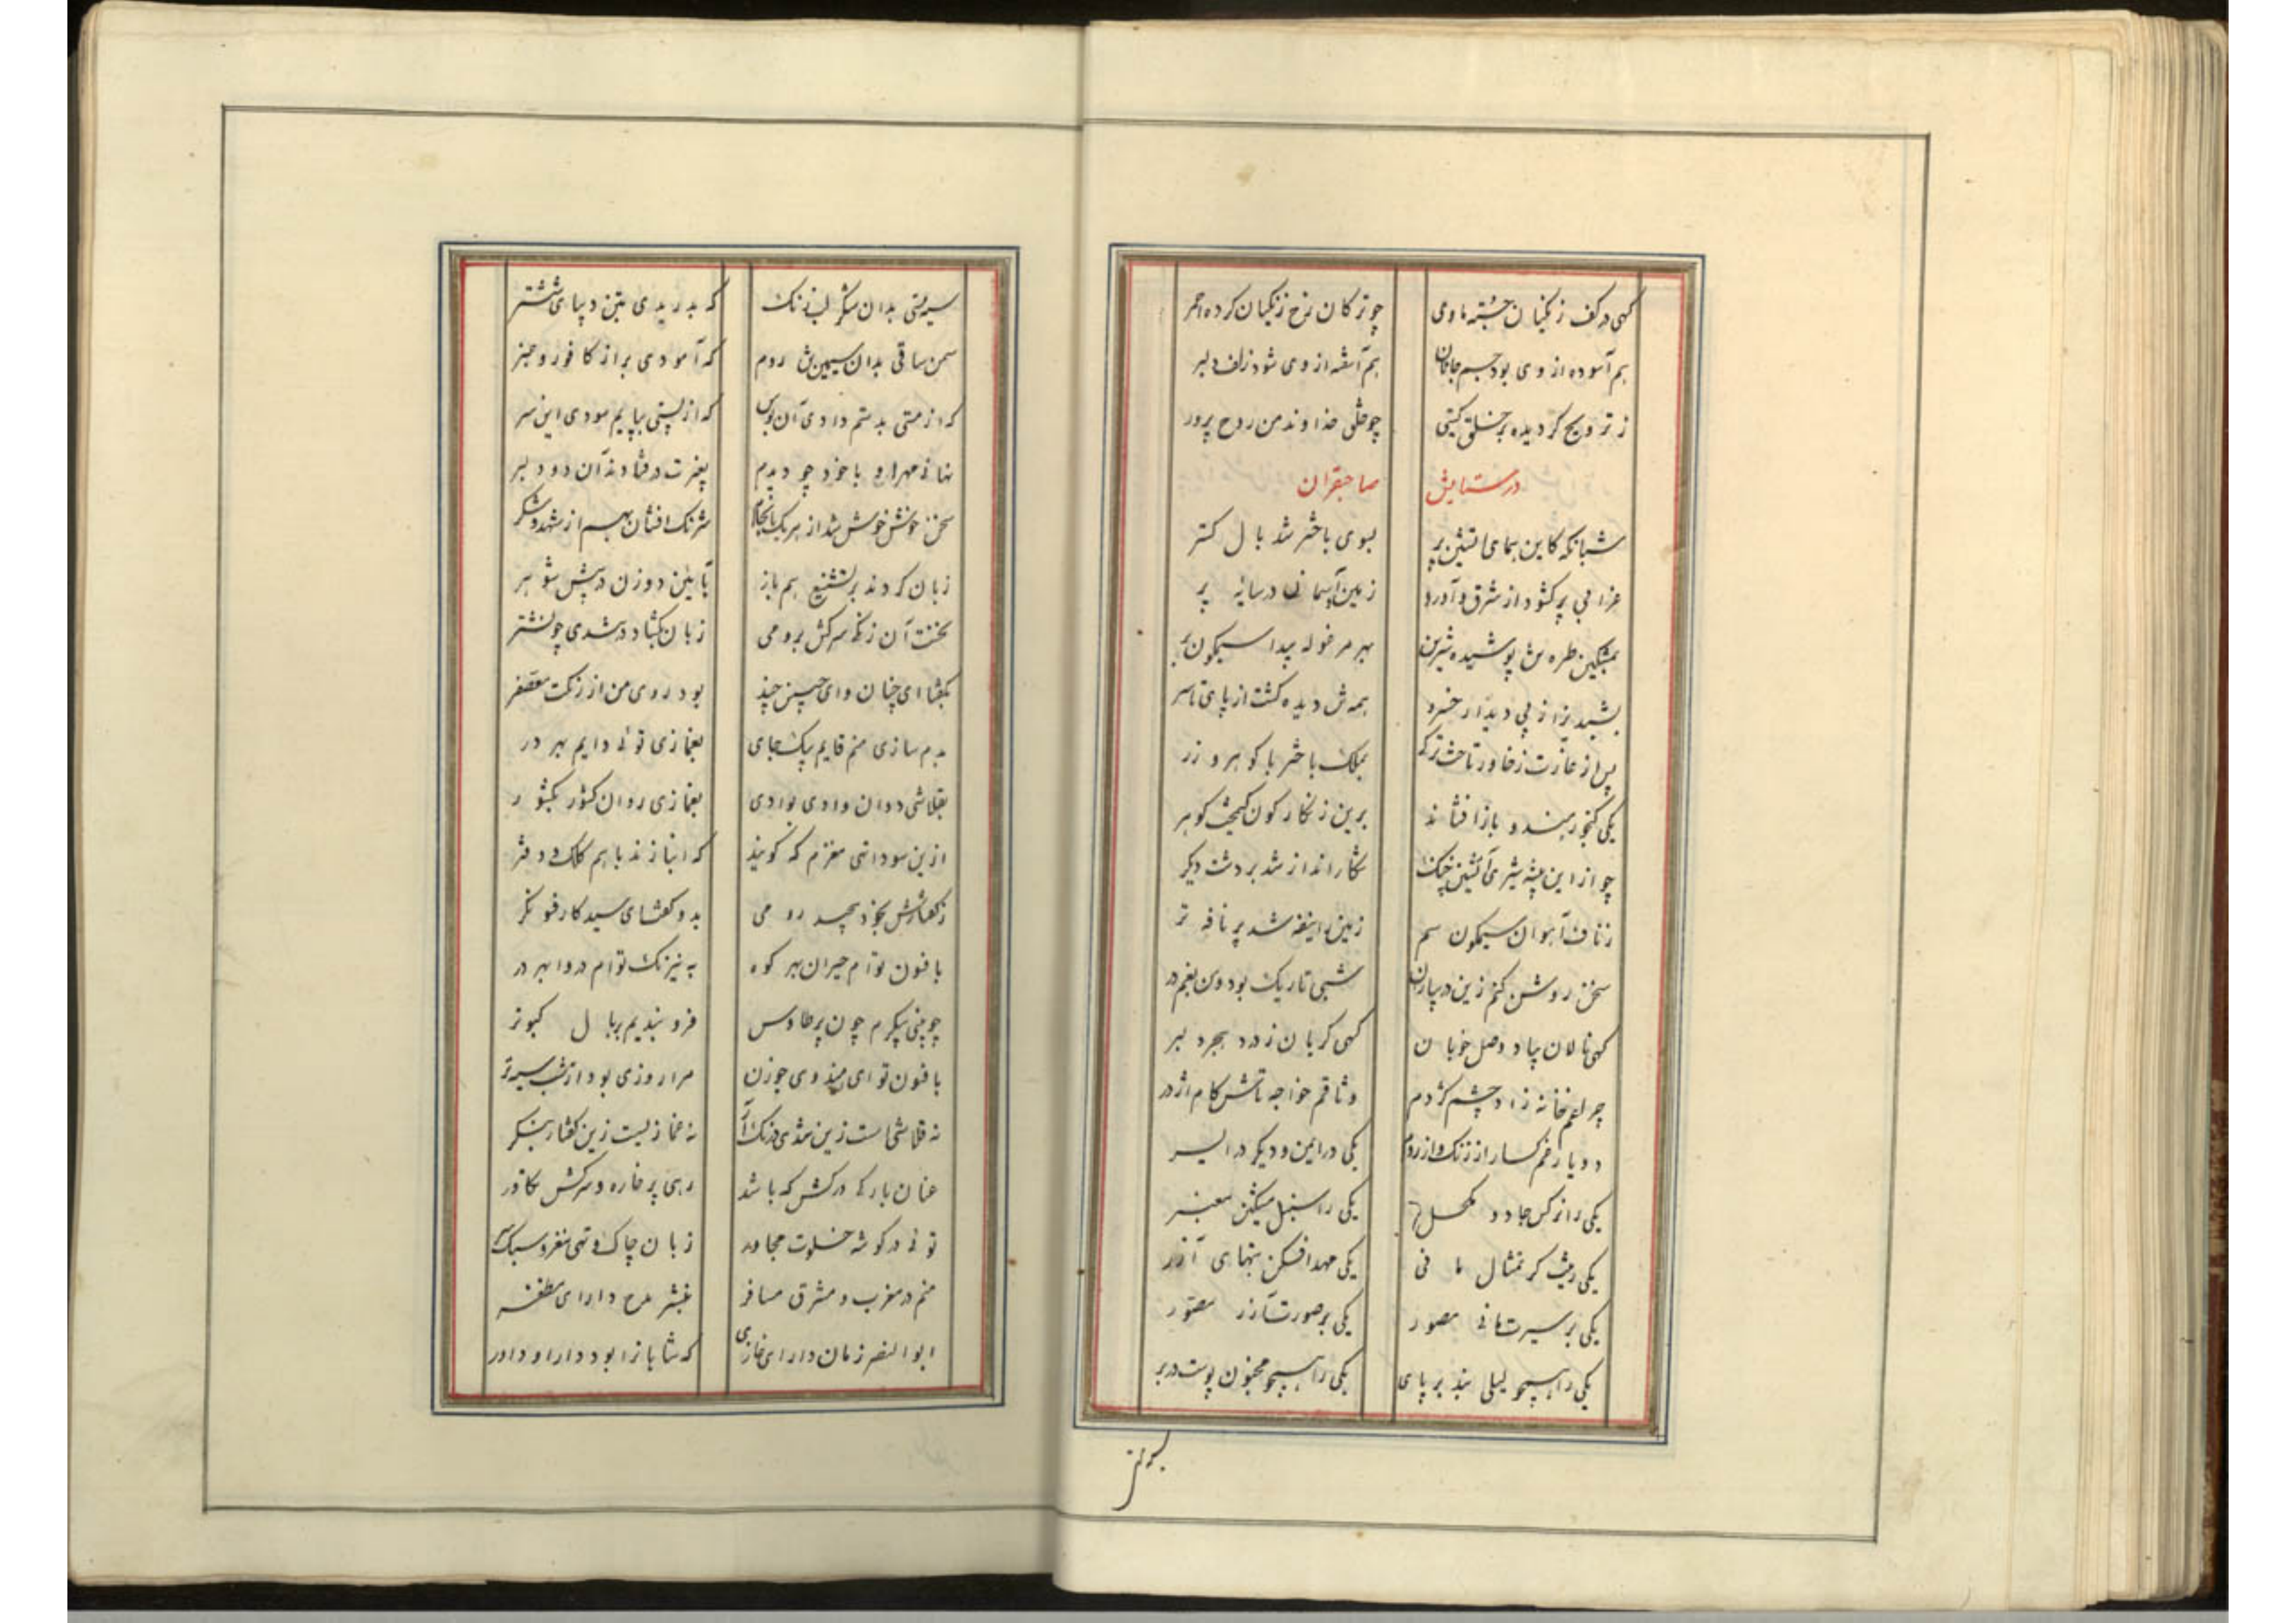 کهی در کف زنکیان جسته ماومی چو ترکان رخ زنکیان کرده احمر
هم آسوده از وی بود جسم جانان هم آشفته از وی شود زلف دلبر
ز ترویح کردیده بر خلق کیتی چو خلق خداوند من روح پرور
در ستایش صاحبقران
شبانکه کاین همای آتشین پر بسوی باختر شد بال کستر
غرابی پر کشود از شرق و آورد زمین آسمان در سایه پر
بمشکین طره ش پوشیده شیرین بهر مرغوله پیدا سیمکون بر
بشبدیز از پی دیدار خسرو همه ش دیده کشت از پای تا سر
پس از غارت ز خاور تاخت ترکی بملک باختر با کوهر و زر
یکی کنجور هندو باز افشاند برین زنکارکون کیمخت کوهر
چو از این بیشه شیری آتشین چنک شکارانداز شد بر دشت دیکر
ز ناف آهوان سیمکون سم زمین را نیفه شد پر نافه تر
سخن روشن کنم زین در بیاران شبی تاریک بود و من بغم در
کهی نالان بیاد وصل خوبان کهی کریان ز درد هجر دلبر
چراغم خانه زاد چشم کژدم وثاقم خواجه تاش کام اژدر
دو یار غمکسار از زنک و از روم یکی در ایمن و دیکر در ایسر
یکی را نرکس جادو مکحل یکی را سنبل مشکین معنبر
یکی ریشت کر تمثال مانی یکی مهدافکن بتهای آزر
یکی بر سیرت مانی مصور یکی بر صورت آزر مصور
یکی را همچو لیلی بند بر پای یکی را همچو مجنون پوست در بر
سیه بستی بدان شکر لب زنک که بدریدی بتن دیبای ششتر
سمن ساقی بدان سیمین تن روم که آمودی براز کافور و عنبر
که از مستی بدستم دادی آن بوس که از پستی بپایم سودی این سر
نهانی مهر او با خود چو دیدم بغیرت در فتادند آن دو دلبر
سخن خوش خوش شد از هر یک بانجام شرنک افشان بهم از شهد و شکر
زبان کردند بر تشنیع هم باز بآیین دو زن در پیش شوهر
نخست آن زنکی سرکش برومی زبان بکشاد در تندی چو نشتر
بکفتا ای چنان و ای چنین چند بود روی من از رنکت معصفر
بدمسازی منم قایم بیک جای بغمازی توئی دایم بهر در
بقلاشی دوان وادی بوادی بغمازی روان کشور بکشور
ازین سودا تهی مغزم که کویند که انبازند با هم کلک و دفتر
ز کفتارش بخود پیچید رومی بدو کفتا ای سیه کار فسونکر
بافسون توام حیران بهر کوه به نیرنک توام دروا بهر در
چو بینی پیکرم چون پر طاوس فرو بندیم بر بال کبوتر
بافسون تو ای هندوی جوزن مرا روزی بود از شب سیه تر
نه قلاشی است زین تندی درنک آر نه غمازیست زین کفتار بنکر
عنان بارکی درکش که باشد رهی پر خاره و سرکش تکاور
توئی در کوشه خلوت مجاور زبان چاک و تهی مغز و سبک سر
منم در مغرب و مشرق مسافر بنشر مدح دارای مظفر
ابوالنصر زمان دارای غازی که شاهانرا بود دارا و داور